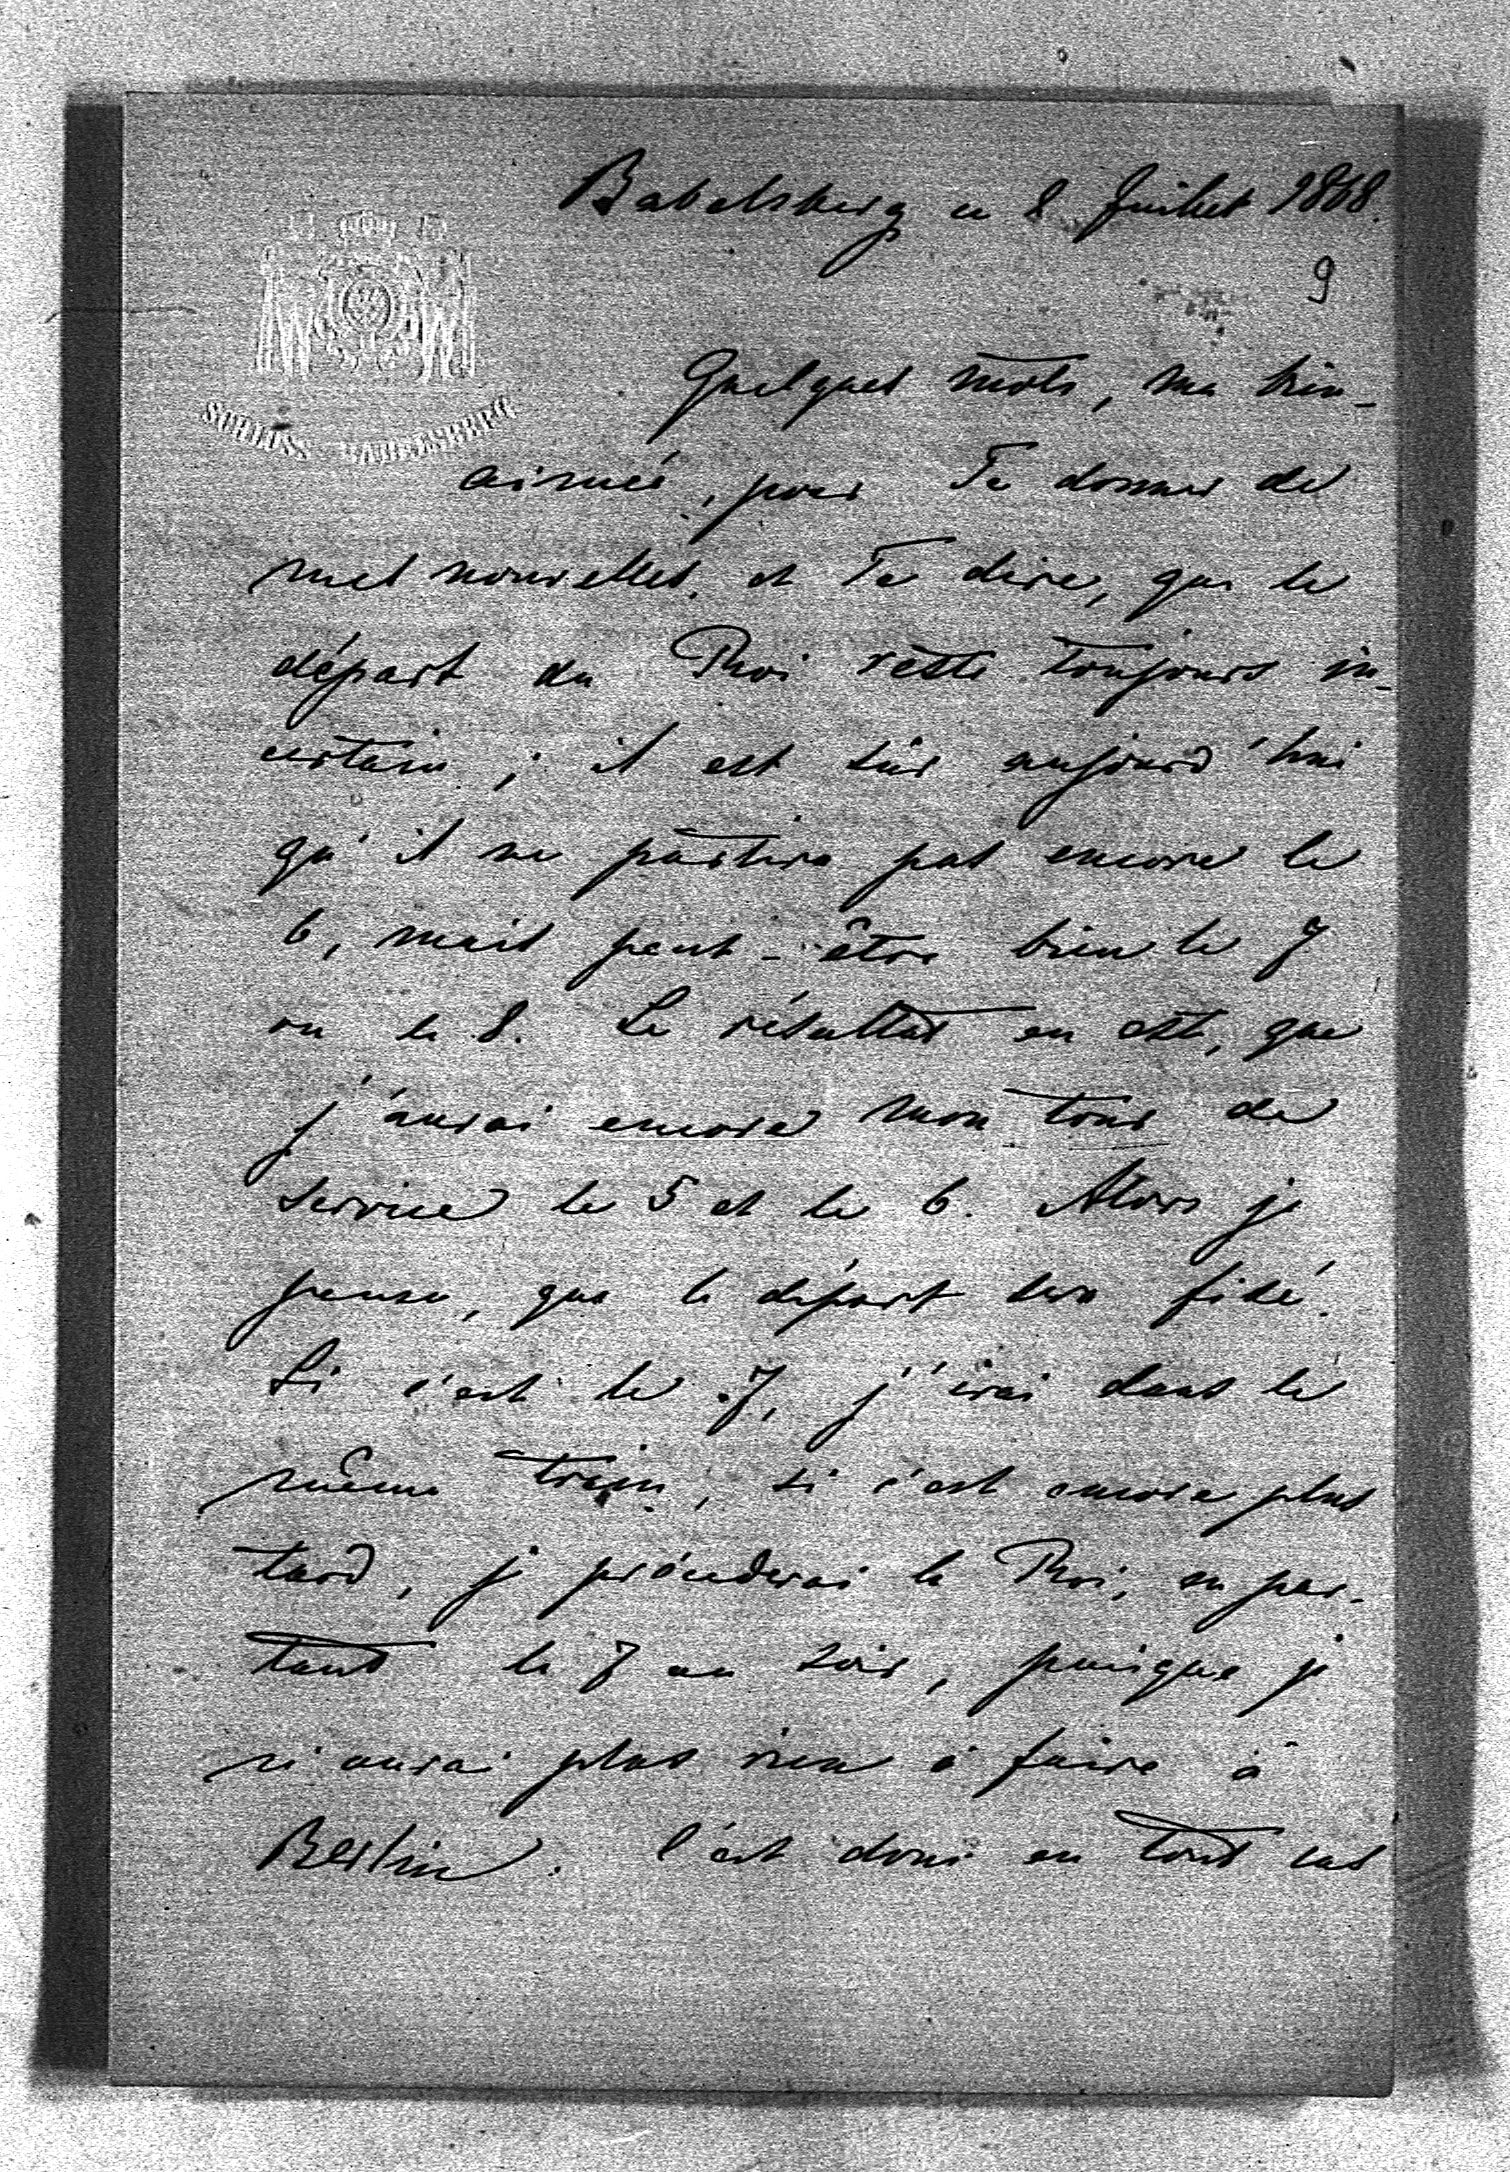 Babelsberg ce 2 Juillet 1868.
9
SCHLOSS BABELSBERG
Quelques mots, ma bien-
aimée, pour Te donner de
mes nouvelles. et Te dire, que le
départ du Roi reste toujours in-
certain; il est sûr aujourd'hui
qu'il ne partira pas encore le
6, mais peut-être bien le 7
ou le 8. Le résultat en est, que
j'aurai encore mon tour de
service le 5 et le 6. Alors je
pense, que le départ sera fixé.
Si c'est le 7, j'irai dans le
même train, si c'est encore plus
tard, je précéderai le Roi, en par-
tant le 7 au soir, puisque je
n'aurai plus rien à faire à
Berlin. C'est donc en tout cas